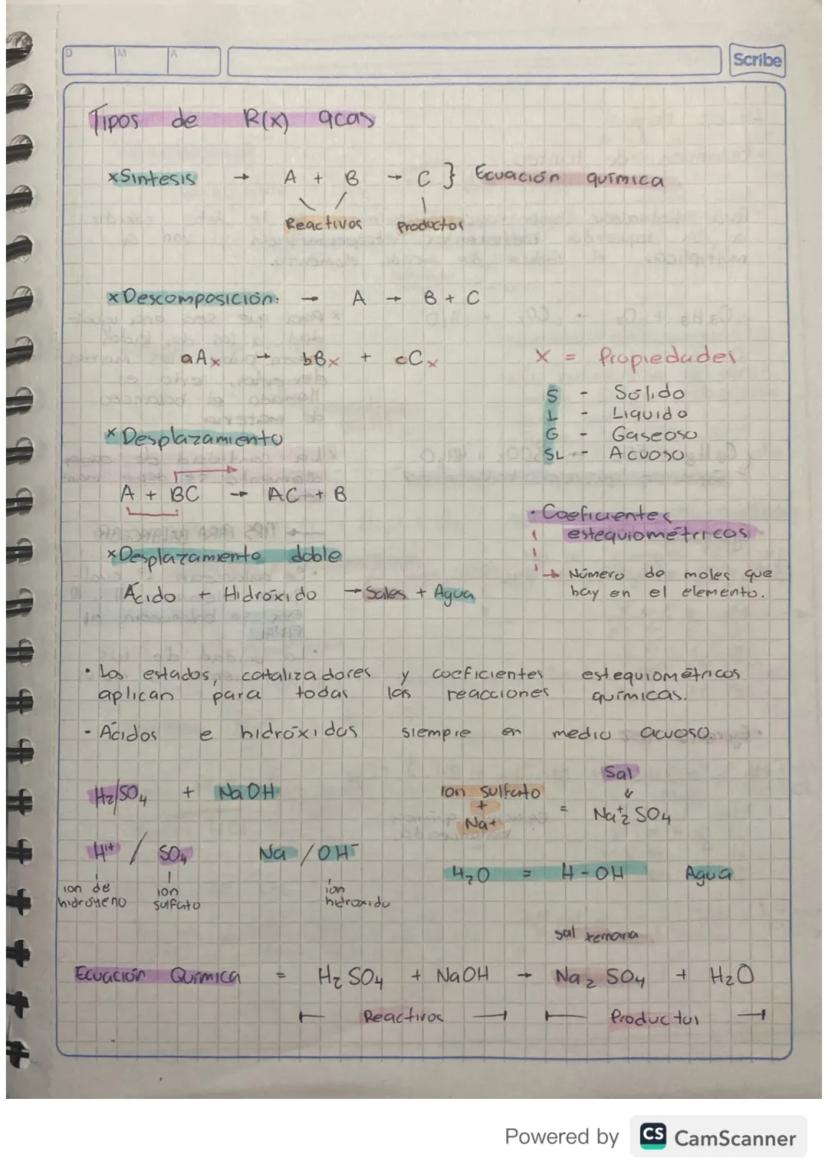 D M A
Scribe
Tipos de R(x) qcas
xSintesis → A + B → C } Ecuación química
Reactivos Productos
xDescomposición: → A → B + C
aAx → bBx + cCx
X = Propiedades
S - Sólido
L - Liquido
G - Gaseoso
SL - Acuoso
x Desplazamiento
A + BC → AC + B
• Coeficientes
estequiométricos
→ Número de moles que
hay en el elemento.
xDesplazamiento doble
Ácido + Hidróxido → Sales + Agua
• Los estados, catalizadores y coeficientes estequiométricos
aplican para todas las reacciones químicas.
- Ácidos e hidróxidos siempre en medio acuoso.
H₂/SO₄ + NaOH
ion sulfato
+
Na+
=
Sal
Na⁺₂ SO₄
H⁺ / SO₄
Na / OH⁻
ion de
hidrogeno
ion
sulfato
ion
hidroxido
H₂O = H - OH Agua
sal ternaria
Ecuación Química = H₂SO₄ + NaOH → Na₂ SO₄ + H₂O
Reactivos Productos
Powered by CS CamScanner